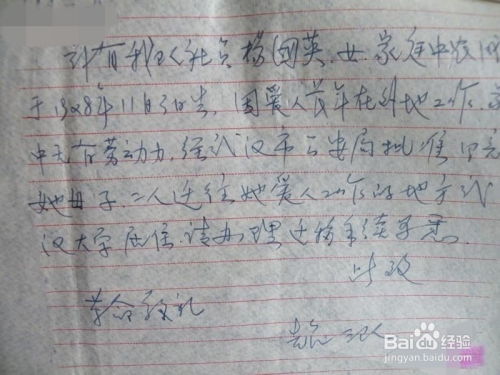 计有我队社员杨国英,女.家庭中农
于1928年11月3日生,因爱人长年在外地工作,家
中无有劳动力,经武汉市公安局批准同意
她母子二人迁往她爱人工作的地方武
汉大学居住,请办理迁移手续乎.
此致
革命敬礼
Baidu 经验
jingyan.baidu.com